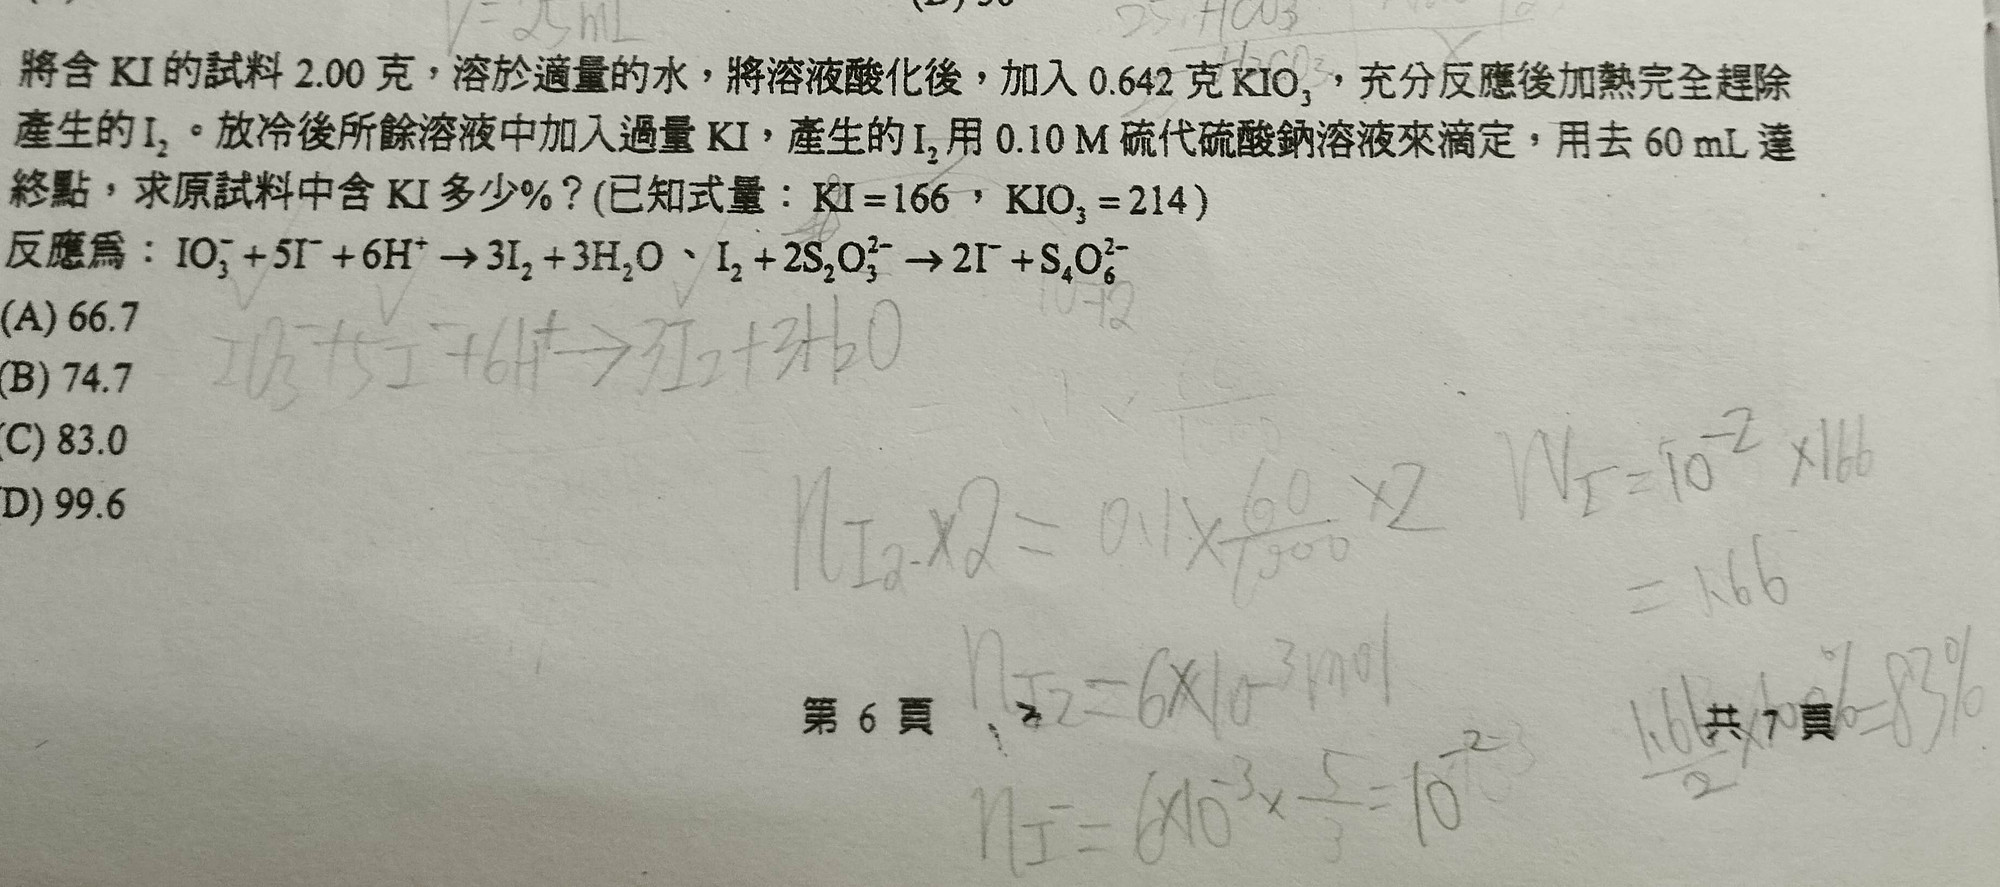 V=25mL
將含 KI 的試料 2.00 克，溶於適量的水，將溶液酸化後，加入 0.642 克 KIO₃，充分反應後加熱完全趕除
產生的 I₂。放冷後所餘溶液中加入過量 KI，產生的 I₂ 用 0.10 M 硫代硫酸鈉溶液來滴定，用去 60 mL 達
終點，求原試料中含 KI 多少%？(已知式量：KI = 166，KIO₃ = 214)
反應為：IO₃⁻ + 5I⁻ + 6H⁺ → 3I₂ + 3H₂O、I₂ + 2S₂O₃²⁻ → 2I⁻ + S₄O₆²⁻
(A) 66.7
(B) 74.7
(C) 83.0
(D) 99.6
IO₃⁻+5I⁻+6H⁺→3I₂+3H₂O
n_I₂×2=0.1×60/1000×2
W_I=10⁻²×166
=1.66
n_I₂=6×10⁻³mol
1.66/2×100%=83%
n_I⁻=6×10⁻³×5/3=10⁻²
第 6 頁
共 7 頁